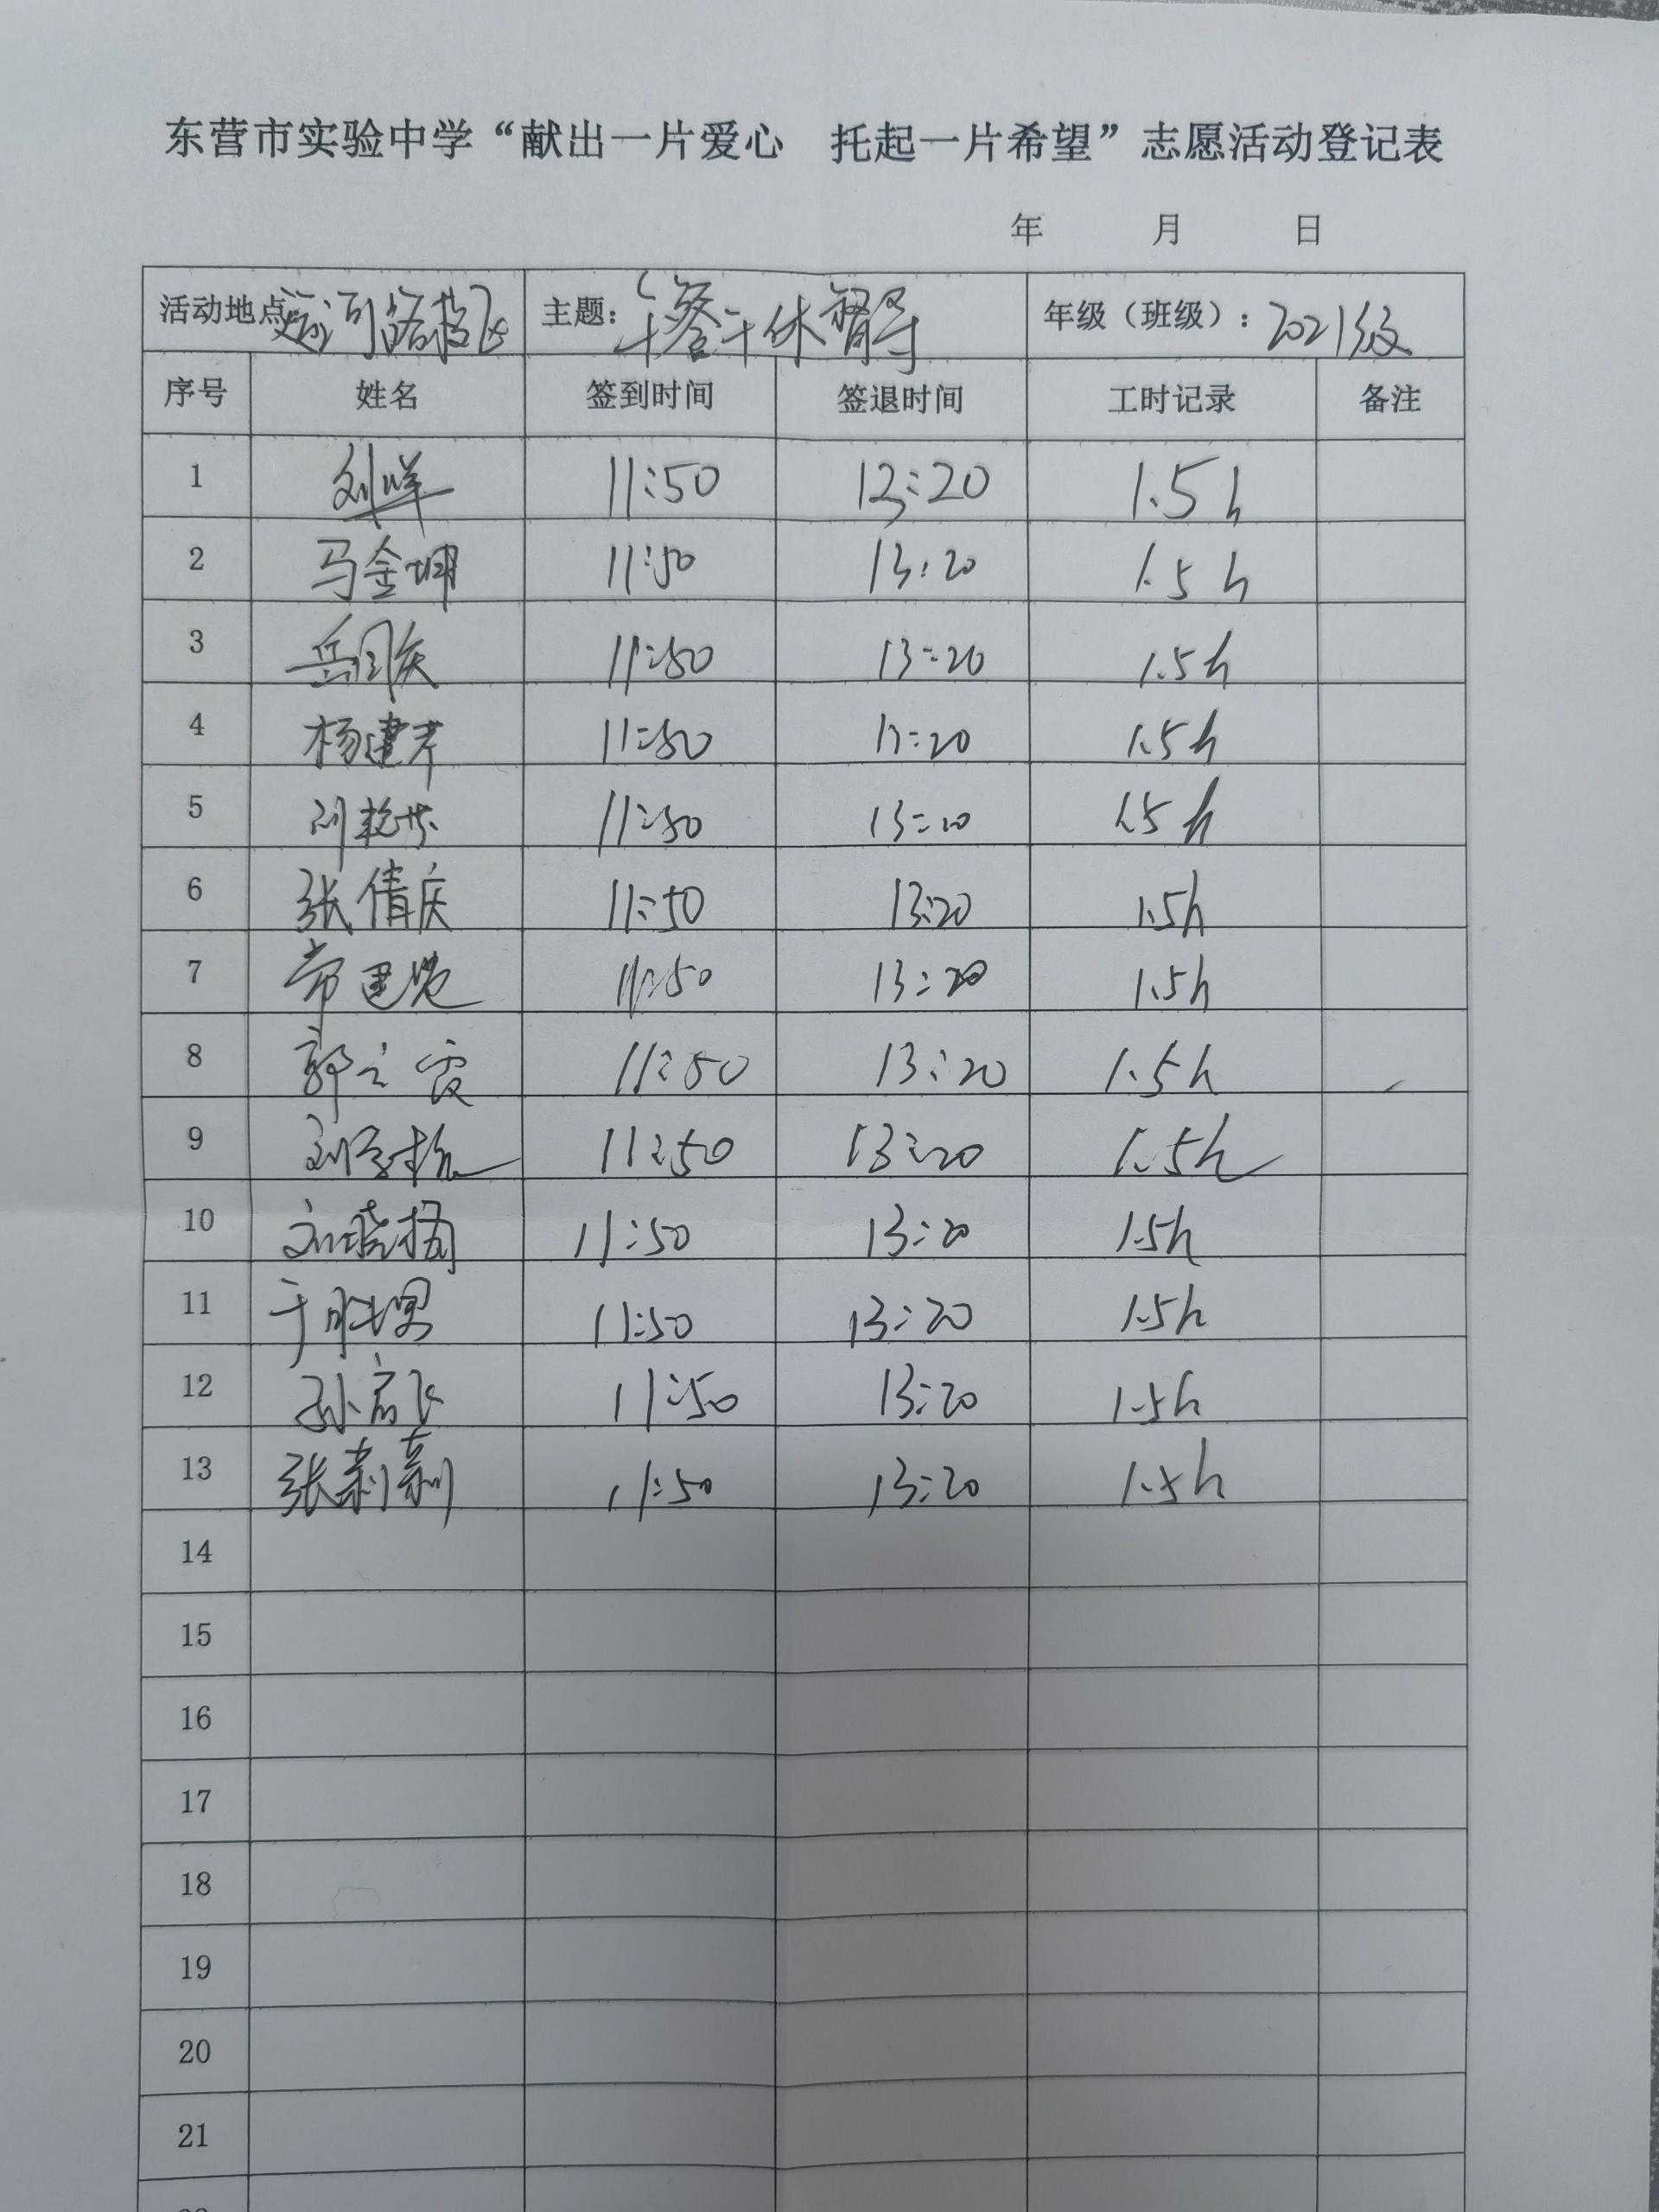 东营市实验中学“献出一片爱心 托起一片希望”志愿活动登记表
年 月 日
活动地点: 运河路校区 主题: 午餐午休督导 年级（班级）: 2021级
序号 姓名 签到时间 签退时间 工时记录 备注
1 刘洋 11:50 13:20 1.5h
2 马金珊 11:50 13:20 1.5h
3 岳同庆 11:50 13:20 1.5h
4 杨建芹 11:50 13:20 1.5h
5 刘艳芬 11:50 13:20 1.5h
6 张倩庆 11:50 13:20 1.5h
7 常建 11:50 13:20 1.5h
8 郭立霞 11:50 13:20 1.5h
9 刘 11:50 13:20 1.5h
10 刘晓梅 11:50 13:20 1.5h
11 于胜男 11:50 13:20 1.5h
12 孙启飞 11:50 13:20 1.5h
13 张莉莉 11:50 13:20 1.5h
14
15
16
17
18
19
20
21